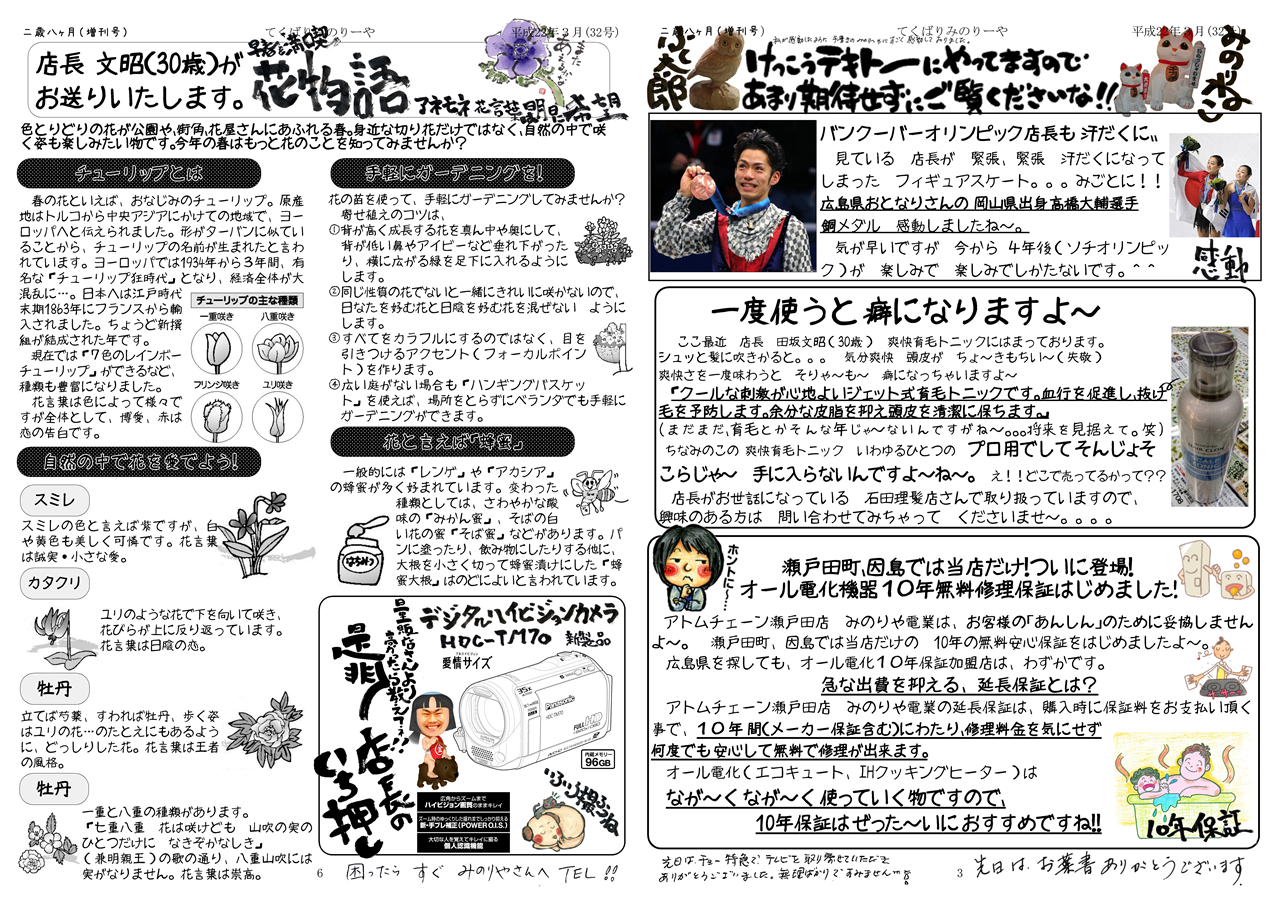 二歳八ヶ月(増刊号)
てくばりみのりーや
平成22年3月(32号)
店長 文昭(30歳)が
お送りいたします。
早春を満喫
花物語
アネモネ 花言葉 期待 希望
色とりどりの花が公園や、街角、花屋さんにあふれる春。身近な切り花だけではなく、自然の中で咲
く姿も楽しみたい物です。今年の春はもっと花のことを知ってみませんか?
チューリップとは
春の花といえば、おなじみのチューリップ。原産
地はトルコから中央アジアにかけての地域で、ヨー
ロッパへと伝えられました。形がターバンに似てい
ることから、チューリップの名前が生まれたと言わ
れています。ヨーロッパでは1934年から3年間、有
名な『チューリップ狂時代』となり、経済全体が大
混乱に…。日本へは江戸時代
末期1863年にフランスから輸
入されました。ちょうど新撰
組が結成された年です。
現在では『7色のレインボー
チューリップ』ができるなど、
種類も豊富になりました。
花言葉は色によって様々で
すが全体として、博愛、赤は
恋の告白です。
チューリップの主な種類
一重咲き
八重咲き
フリンジ咲き
ユリ咲き
自然の中で花を愛でよう!
スミレ
スミレの色と言えば紫ですが、白
や黄色も美しく可憐です。花言葉
は誠実・小さな愛。
カタクリ
ユリのような花で下を向いて咲き、
花びらが上に反り返っています。
花言葉は日陰の恋。
牡丹
立てば芍薬、すわれば牡丹、歩く姿
はユリの花…のたとえにもあるよう
に、どっしりした花。花言葉は王者
の風格。
牡丹
一重と八重の種類があります。
『七重八重 花は咲けども 山吹の実の
ひとつだけに なきぞかなしき』
(兼明親王)の歌の通り、八重山吹には
実がなりません。花言葉は崇高。
手軽にガーデニングを!
花の苗を使って、手軽にガーデニングしてみませんか?
寄せ植えのコツは、
①背が高く成長する花を真ん中や奥にして、
背が低い鼻やアイビーなど垂れ下がった
り、横に広がる緑を足下に入れるように
します。
②同じ性質の花でないと一緒にきれいに咲かないので、
日なたを好む花と日陰を好む花を混ぜない ように
します。
③すべてをカラフルにするのではなく、目を
引きつけるアクセント(フォーカルポイン
ト)を作ります。
④広い庭がない場合も『ハンギングバスケッ
ト』を使えば、場所をとらずにベランダでも手軽に
ガーデニングができます。
花と言えば『蜂蜜』
一般的には『レンゲ』や『アカシア』
の蜂蜜が多く好まれています。変わった
種類としては、さわやかな酸
味の『みかん蜜』、そばの白
い花の蜜『そば蜜』などがあります。パ
ンに塗ったり、飲み物にしたりする他に、
大根を小さく切って蜂蜜漬けにした『蜂
蜜大根』はのどによいと言われています。
はちみつ
デジタルハイビジョンカメラ
HDC-TM70 新製品
愛情サイズ
量販店さんより
高かったら教えて下さい!!
是非!
店長の
いち押し
35x
Panasonic
HDC-TM70
FULL HD
内蔵メモリー
96GB
広角からズームまで
ハイビジョン画質のままキレイ
ズーム時のゆっくりした揺れまでしっかり抑える
新・手ブレ補正(POWER O.I.S.)
大切な人を覚えてキレイに撮る
個人認識機能
6
困ったら すぐ みのりやさんへ TEL!!
二歳八ヶ月(増刊号)
てくばりみのりーや
平成22年3月(32号)
けっこうテキトーにやってますので
あまり期待せずにご覧くださいな!!
みのねこ
バンクーバーオリンピック店長も汗だくに〟
見ている 店長が 緊張、緊張 汗だくになって
しまった フィギュアスケート。。。みごとに!!
広島県おとなりさんの 岡山県出身高橋大輔選手
銅メダル 感動しましたね~。
気が早いですが 今から 4年後(ソチオリンピッ
ク)が 楽しみで 楽しみでしかたないです。^ ^
感動
一度使うと癖になりますよ~
ここ最近 店長 田坂文昭(30歳) 爽快育毛トニックにはまっております。
シュッと髪に吹きかると。。。 気分爽快 頭皮が ちょ~きもちい~(失敬)
爽快さを一度味わうと そりゃ~も~ 癖になっちゃいますよ~
『クールな刺激が心地よいジェット式育毛トニックです。血行を促進し、抜け
毛を予防します。余分な皮脂を抑え頭皮を清潔に保ちます。』
(まだまだ、育毛とかそんな年じゃ~ないんですがね~。。。将来を見据えて。笑)
ちなみのこの 爽快育毛トニック いわゆるひとつの プロ用でしてそんじょそ
こらじゃ~ 手に入らないんですよ~ね~。 え!!どこで売ってるかって??
店長がお世話になっている 石田理髪店さんで取り扱っていますので、
興味のある方は 問い合わせてみちゃって くださいませ~。。。。
ホントに~…
瀬戸田町、因島では当店だけ!ついに登場!
オール電化機器10年無料修理保証はじめました!
アトムチェーン瀬戸田店 みのりや電業は、お客様の「あんしん」のために妥協しません
よ~。 瀬戸田町、因島では当店だけの 10年の無料安心保証をはじめましたよ~。
広島県を探しても、オール電化10年保証加盟店は、わずかです。
急な出費を抑える、延長保証とは?
アトムチェーン瀬戸田店 みのりや電業の延長保証は、購入時に保証料をお支払い頂く
事で、10年間(メーカー保証含む)にわたり、修理料金を気にせず
何度でも安心して無料で修理が出来ます。
オール電化(エコキュート、IHクッキングヒーター)は
なが~くなが~く使っていく物ですので、
10年保証はぜった~いにおすすめですね!!
10年保証
ありがとうございました。無理ばかりですみません
3
先日は、お葉書ありがとうございます